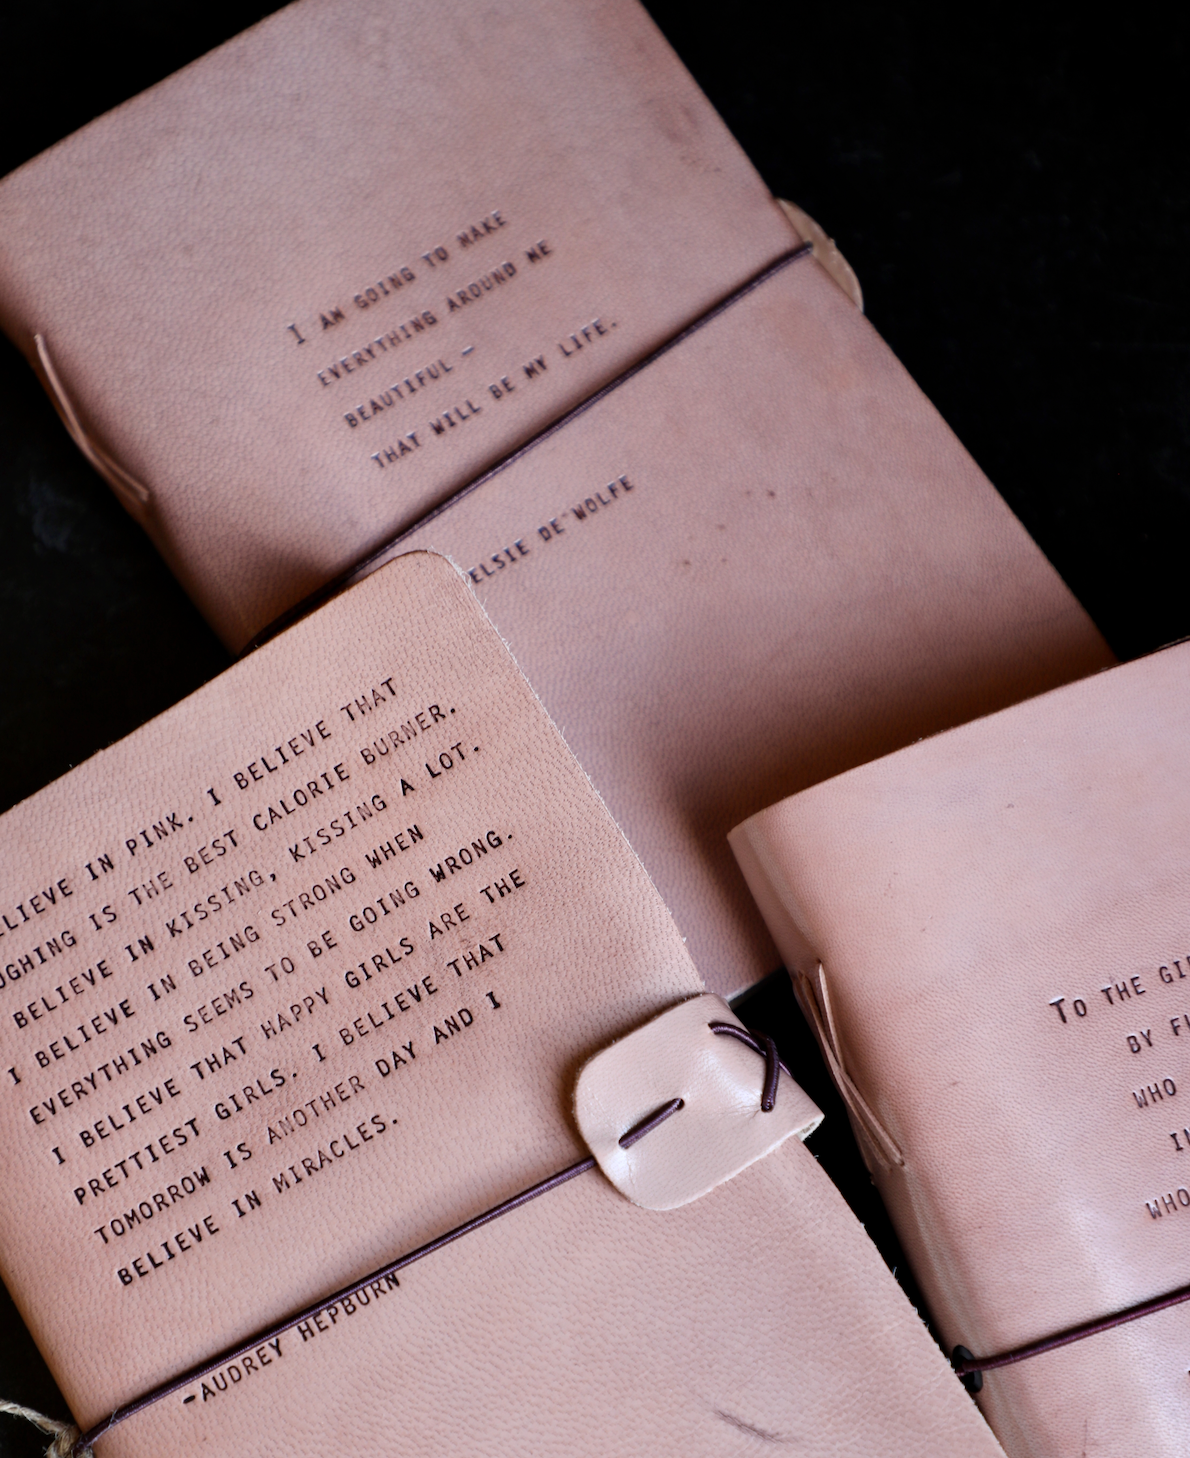 I AM GOING TO MAKE
EVERYTHING AROUND ME
BEAUTIFUL —
THAT WILL BE MY LIFE.
ELSIE DE WOLFE
IN PINK. I BELIEVE THAT
IS THE BEST CALORIE BURNER.
BELIEVE IN KISSING, KISSING A LOT.
I BELIEVE IN BEING STRONG WHEN
EVERYTHING SEEMS TO BE GOING WRONG.
I BELIEVE THAT HAPPY GIRLS ARE THE
PRETTIEST GIRLS. I BELIEVE THAT
TOMORROW IS ANOTHER DAY AND I
BELIEVE IN MIRACLES.
-AUDREY HEPBURN
TO THE
BY
WHO
WHO